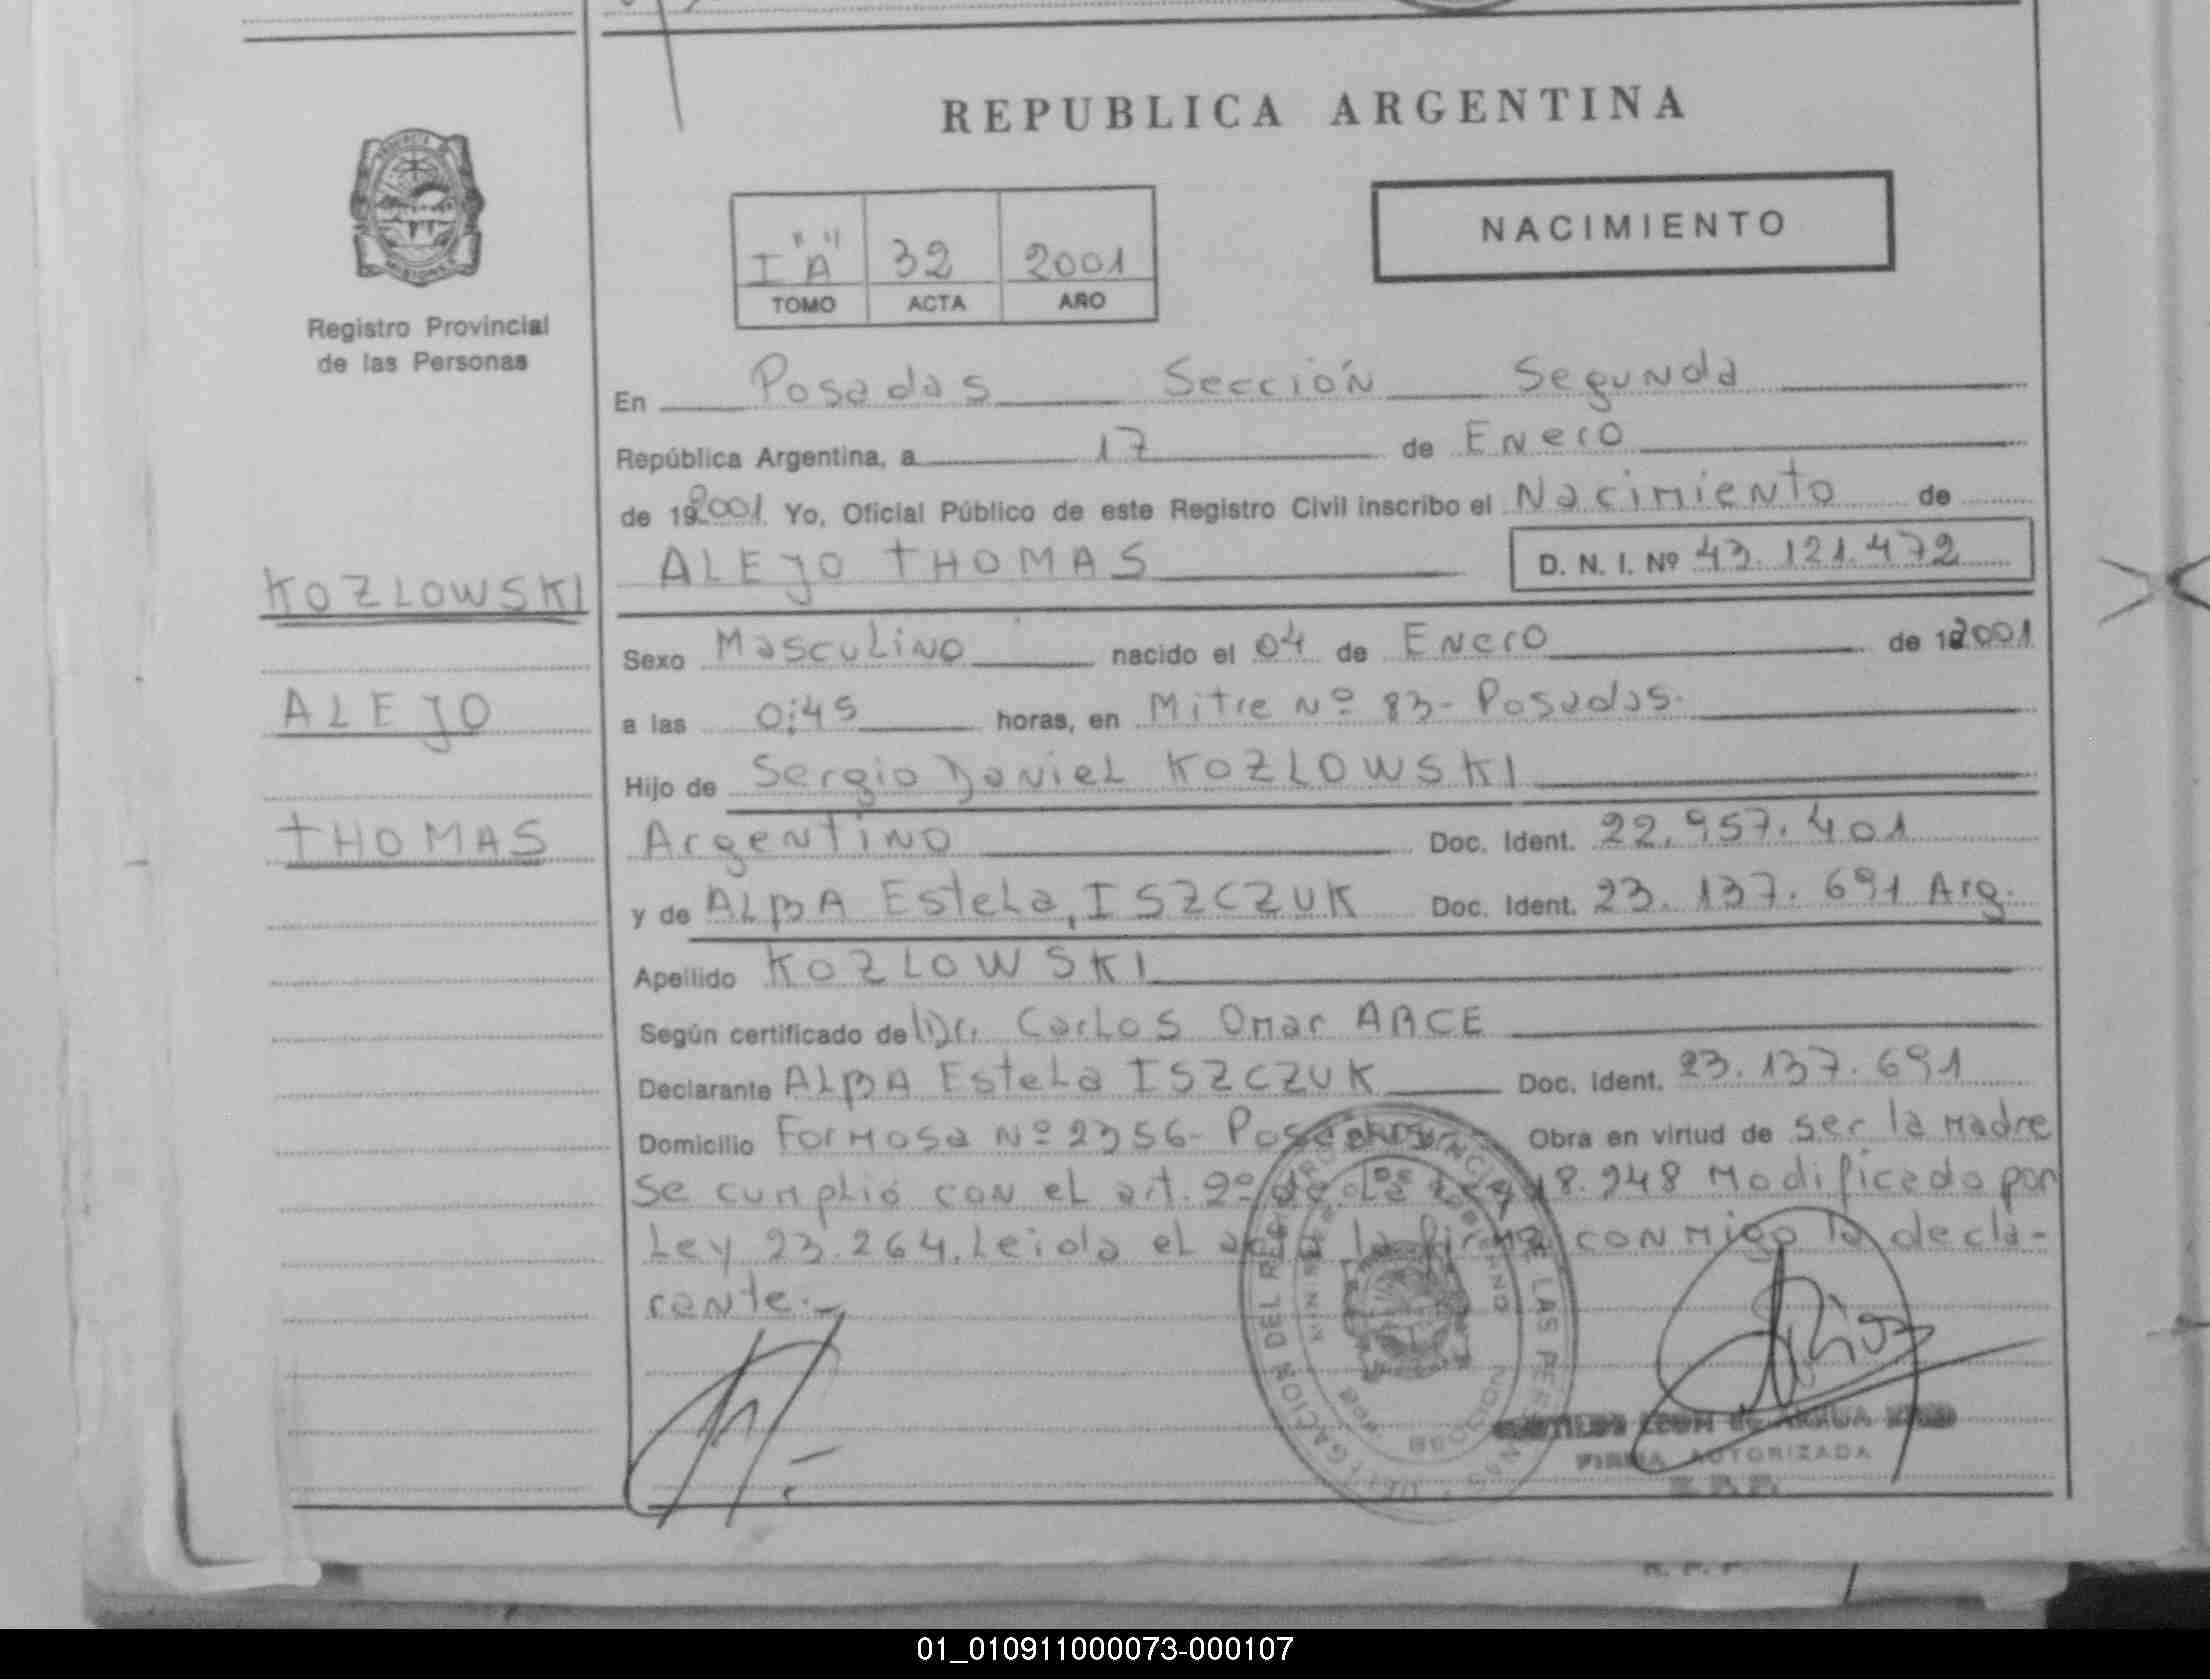 REPUBLICA ARGENTINA
NACIMIENTO
I "A" 32 2001
TOMO ACTA AÑO
Registro Provincial
de las Personas
En Posadas Sección Segunda
República Argentina, a 17 de Enero
de 192001 Yo, Oficial Público de este Registro Civil inscribo el Nacimiento de
ALEJO THOMAS D. N. I. Nº 43.121.472
KOZLOWSKI
ALEJO
THOMAS
Sexo Masculino nacido el 04 de Enero de 192001
a las 0:45 horas, en Mitre Nº 83- Posadas.
Hijo de Sergio Daniel KOZLOWSKI
Argentino Doc. Ident. 22.957.401
y de ALBA Estela, ISZCZUK Doc. Ident. 23.137.691 Arg.
Apellido KOZLOWSKI
Según certificado de Dr. Carlos Omar ARCE
Declarante ALBA Estela ISZCZUK Doc. Ident. 23.137.691
Domicilio Formosa Nº 2356- Posadas Obra en virtud de ser la Madre
Se cumplió con el art. 2º de la Ley 18.248 Modificado por
Ley 23.264. Leida el acta la firma conmigo la decla-
rante.-
DELEGACION DEL REGISTRO PROVINCIAL DE LAS PERSONAS
FIRMA AUTORIZADA
R. P. P.
01_010911000073-000107